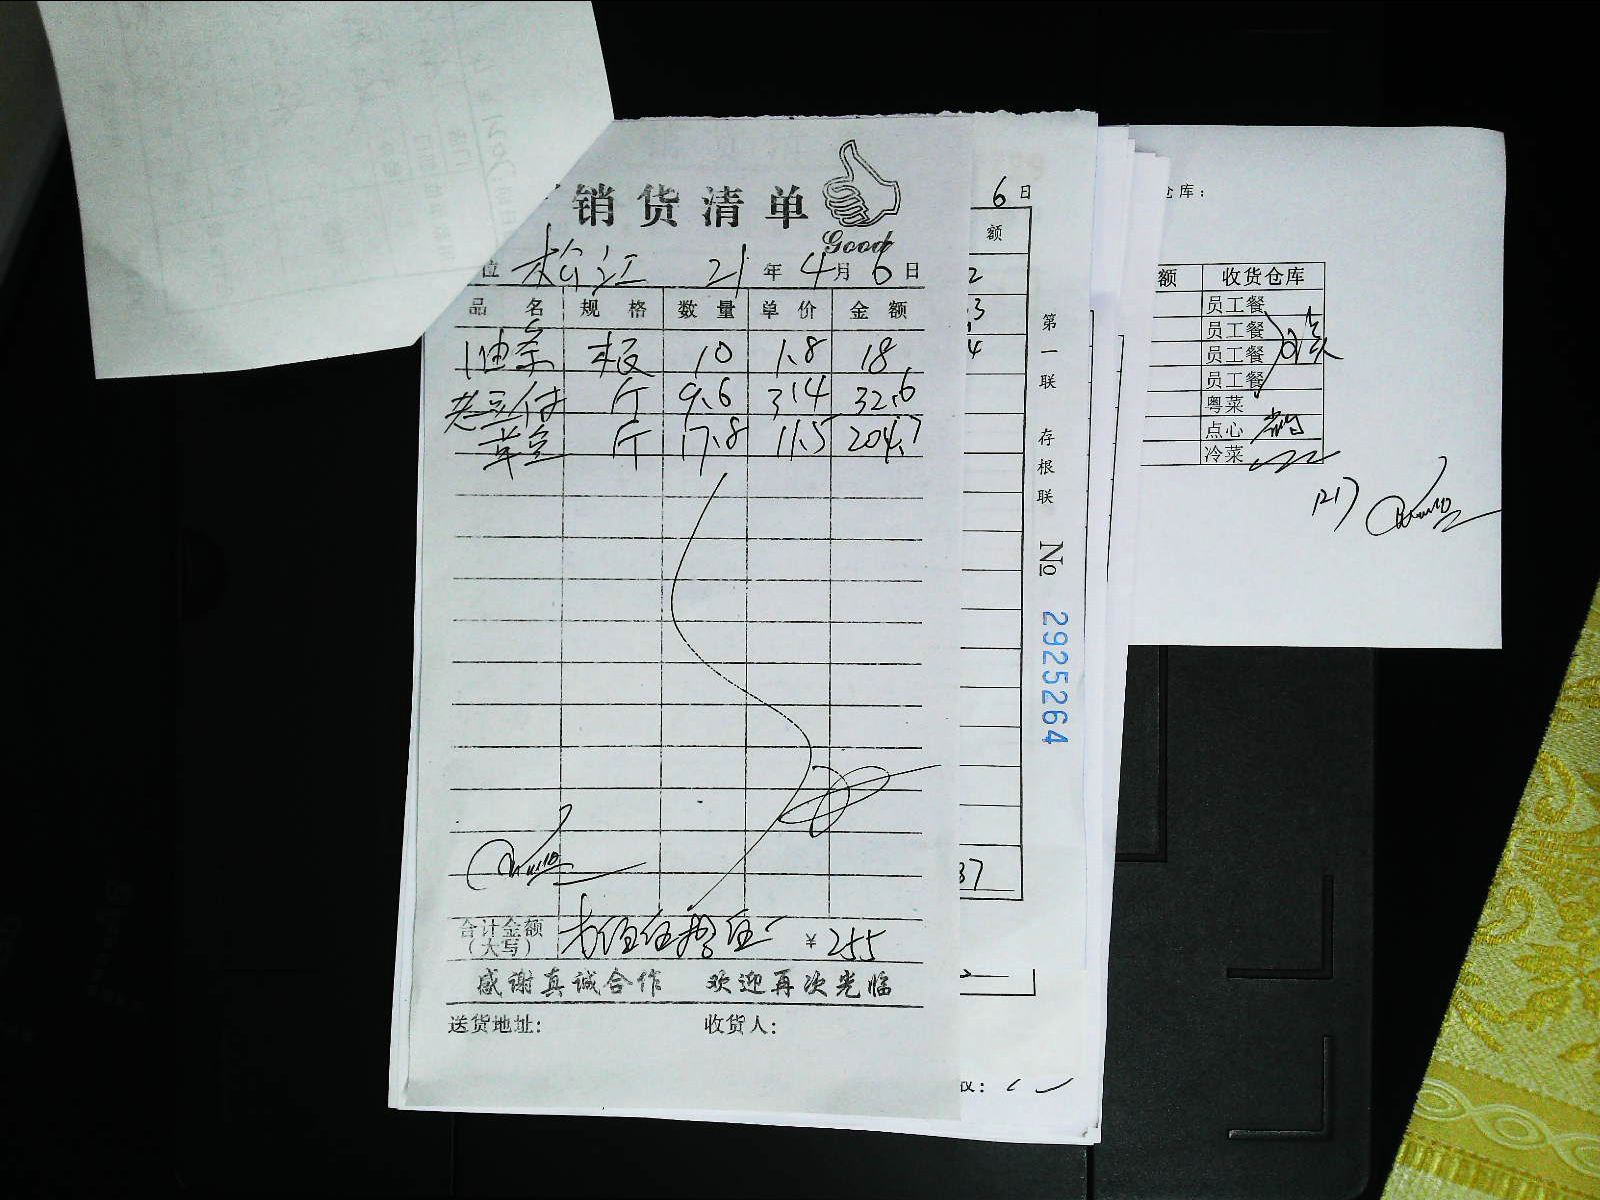 销货清单
Good
位 松江 21年4月6日
品名 规格 数量 单价 金额
油条 板 10 1.8 18
老豆付 斤 9.6 3.4 32.6
草豆 斤 17.8 11.5 204.7
合计金额
(大写) ¥ 255
感谢真诚合作 欢迎再次光临
送货地址: 收货人:
6日
额
2
.3
4
37
第一联 存根联 No 2925264
仓库:
额 收货仓库
员工餐
员工餐
员工餐
员工餐
粤菜
点心
冷菜